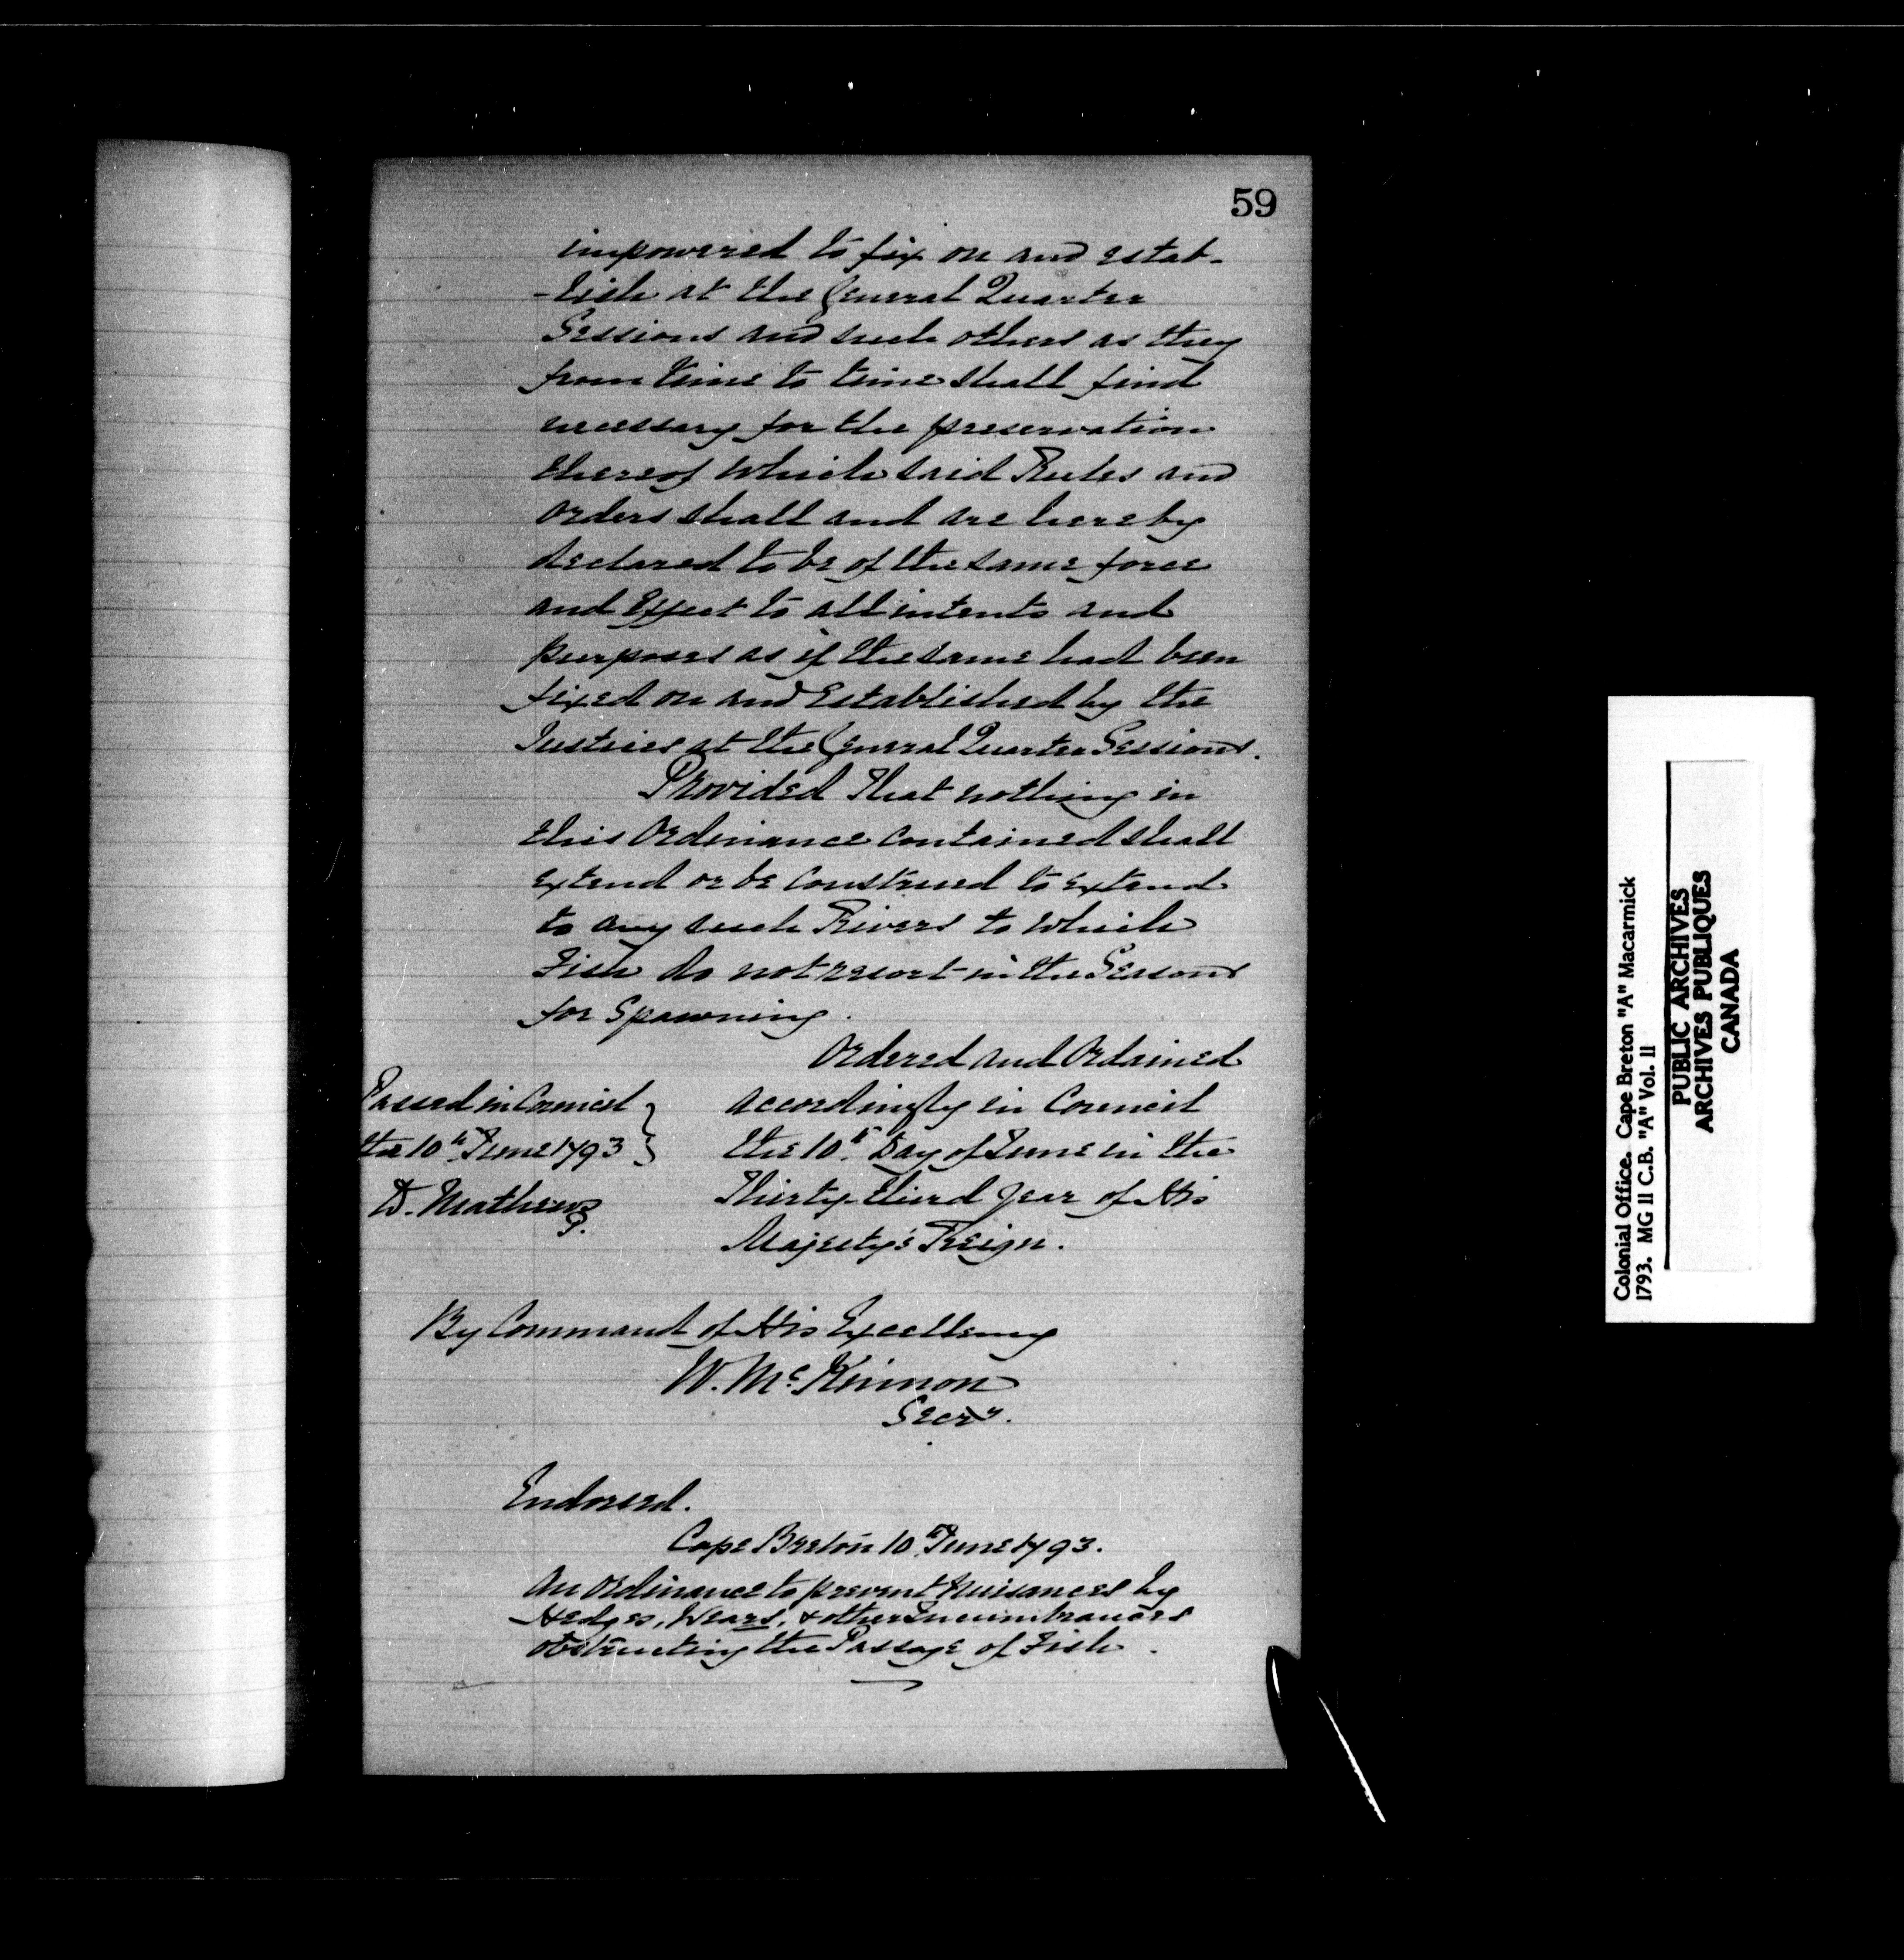 59
impowered to fix on and estab-
-lish at the General Quarter
Sessions and such others as they
from time to time shall find
necessary for the preservation
thereof which said Rules and
orders shall and are hereby
declared to be of the same force
and Effect to all intents and
purposes as if the same had been
fixed on and Established by the
Justices at the General Quarter Sessions.
Provided That nothing in
this Ordinance contained shall
extend or be construed to extend
to any such Rivers to which
Fish do not resort in the Seasons
for Spawning.
Ordered and Ordained
accordingly in Council
the 10th Day of June in the
Thirty-third Year of His
Majesty's Reign.
Passed in Council
the 10th June 1793
D. Mathews
By Command of His Excellency
W. McKinnon
Secry.
Endorsed.
Cape Breton 10th June 1793.
An Ordinance to prevent Nuisances by
Hedges, Wears, & other Incumbrances
obstructing the Passage of Fish.
Colonial Office. Cape Breton "A" Macarmick
1793. MG 11 C.B. "A" Vol. 11
PUBLIC ARCHIVES
ARCHIVES PUBLIQUES
CANADA